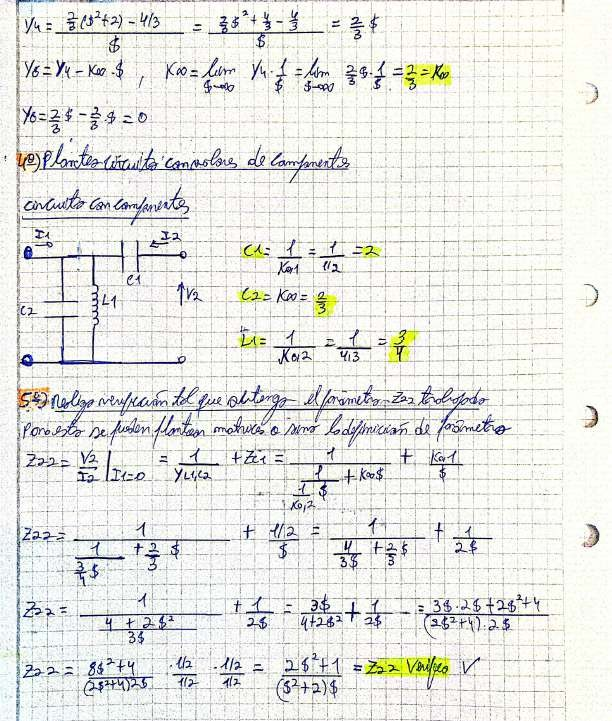 Y4 = (2/3($²+2) - 4/3)/$ = (2/3 $² + 4/3 - 4/3)/$ = 2/3 $
Y6 = Y4 - K∞·$ , K∞ = lim $→∞ Y4·1/$ = lim $→∞ 2/3 $·1/$ = 2/3 = K∞
Y6 = 2/3 $ - 2/3 $ = 0
4º) Plantea circuito con valores de componentes
circuito con componentes
I1 I2
C1
C2 L1 ↑V2
C1 = 1/K0,1 = 1/1/2 = 2
C2 = K∞ = 2/3
L1 = 1/K0,2 = 1/4/3 = 3/4
5º) realiza verificación tal que obtenga el parametro Z22 trabajado
Para esto se pueden plantear matrices o sino la definicion de parámetros
Z22 = V2/I2 | I1=0 = 1/YL1,C2 + Zc1 = 1/(1/(1/K0,2 $) + K∞$) + K0,1/$
Z22 = 1/(1/(3/4 $) + 2/3 $) + 1/2/$ = 1/(4/3$ + 2/3 $) + 1/2$
Z22 = 1/((4 + 2$²)/3$) + 1/2$ = 3$/(4+2$²) + 1/2$ = (3$·2$ + 2$²+4)/((2$²+4)·2$)
Z22 = (8$²+4)/((2$²+4)2$) · 1/2/1/2 · 1/2/1/2 = (2$²+1)/(($²+2)$) = Z22 Verifico ✓